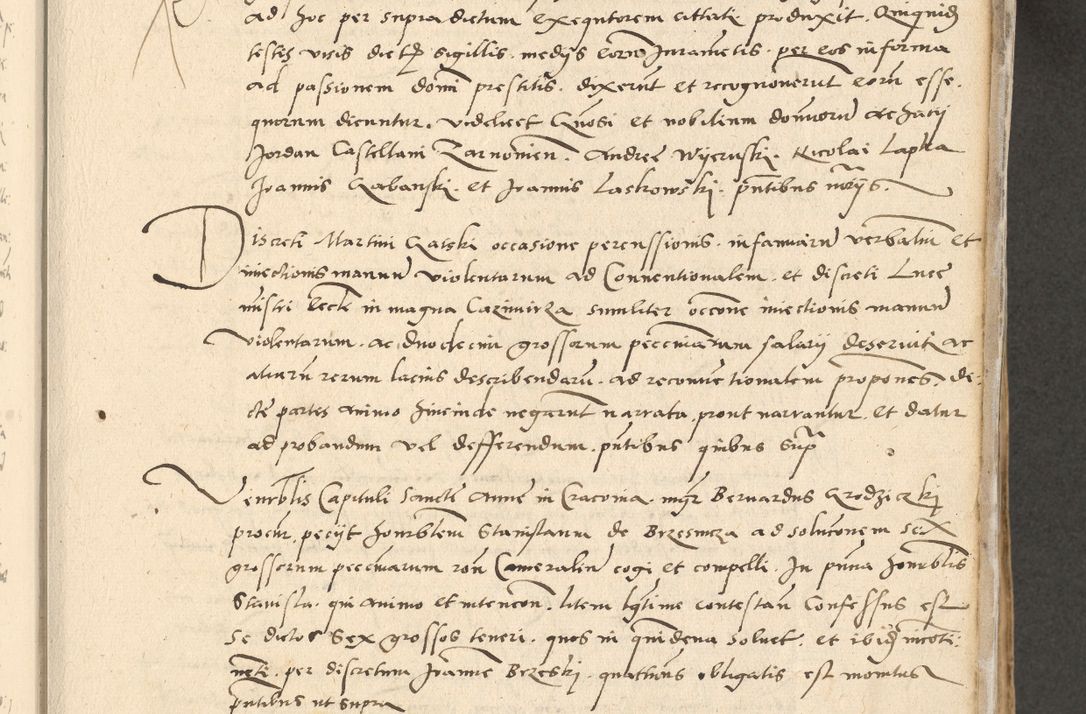 ad hoc per supra dictum exequtorem cittati produxit. Quiquid
testes visis dict sigillis. medys eorum Juramentis. per eos in forma
ad passionem domini prestitis. dixerunt et recognoverunt eoru esse.
quorum dicuntur. videlicet Gnosi et nobilium donioru Achatii
Jordan Castellani Zarnovien. Andree Wyeruski. Nicolai Lapka
Joannis Grabanski. et Joannis Laskowski. pntibus
Discreti Martini Gatski occasione percussionis. infamiaru verbaliu et
iniectionis manuu violentarum ad Conventionalem. et discreti Luce
mistri in magna Cazimirza similiter occone iniectionis manuu
violentarum. ac duodecim grossorum pecuniarum salarii deserviti ac
aliaru rerum lacius describendaru. ad reconventionalem propones. de
cte partes animo hincinde negarunt narrata prout narrantur. et datur
ad probandum vel defferendum. pntibus quibus supra
Venerblis Capituli Sancte Anne in Cracovia. mgr Bernardus Grodziczki
procur. pecijt honrblem Stanislaum de Brzesnicza ad soluconem sex
grossorum pecuniarum ron Cameraliu cogi et compelli. In pnna honrblis
Stanisla. qui animo et intencon. litem lgtime contestan Confessus est
se dictos Sex grossos teneri. quos in quindena solvet. et ibid
per discretum Joanne Brzeski. quathenus obligatis est monitus
pntibus ut supra